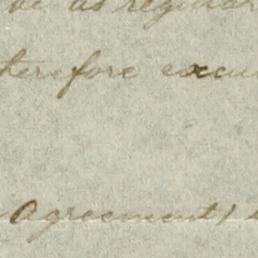 be as regular
therefore excu
Agreement)